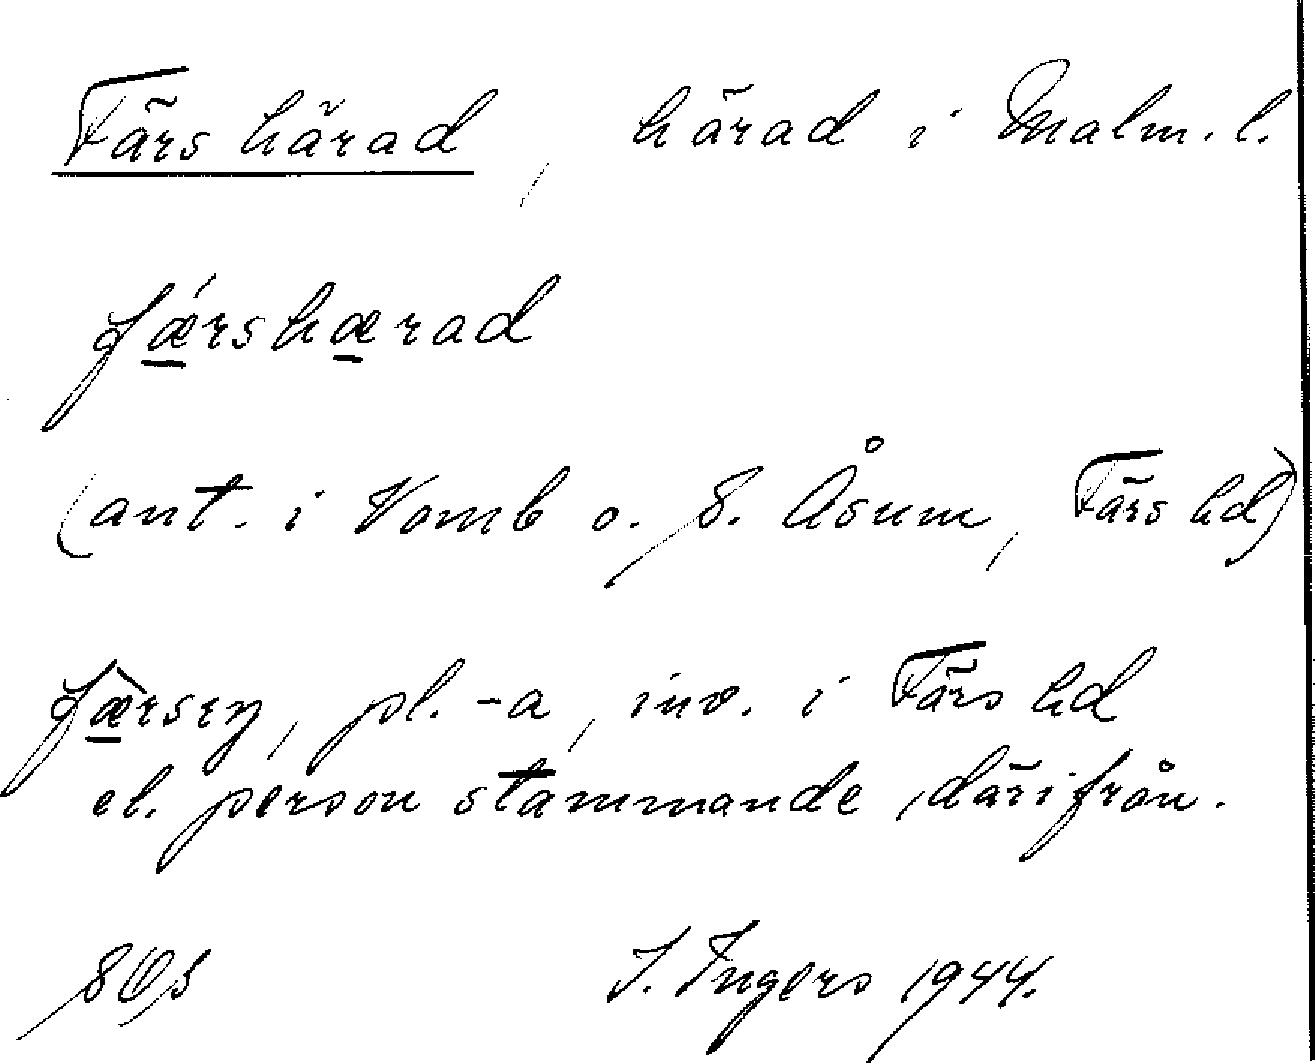 Färs härad, härad i Malm. l.
fǽ̱rshæ̱rad
(ant. i Vomb o. S. Åsum, Färs hd)
fæ̱̂rsɪŋ, pl. -a, inv. i Färs hd
el. person stammande därifrån.
I. Ingers 1944.